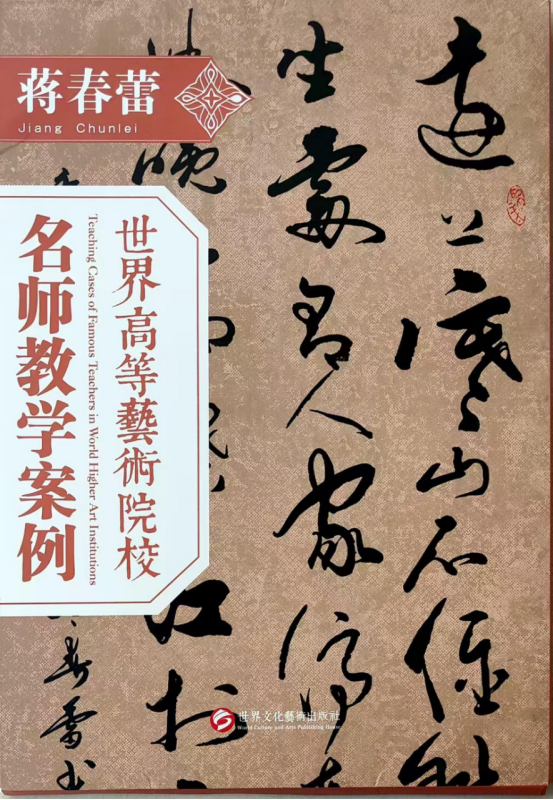 蒋春蕾
Jiang Chunlei
世界高等藝術院校
Teaching Cases of Famous Teachers in World Higher Art Institutions
名师教学案例
遠上寒山石徑
生處有人家停
晚
红於
春蕾书
世界文化藝術出版社
World Culture and Arts Publishing House